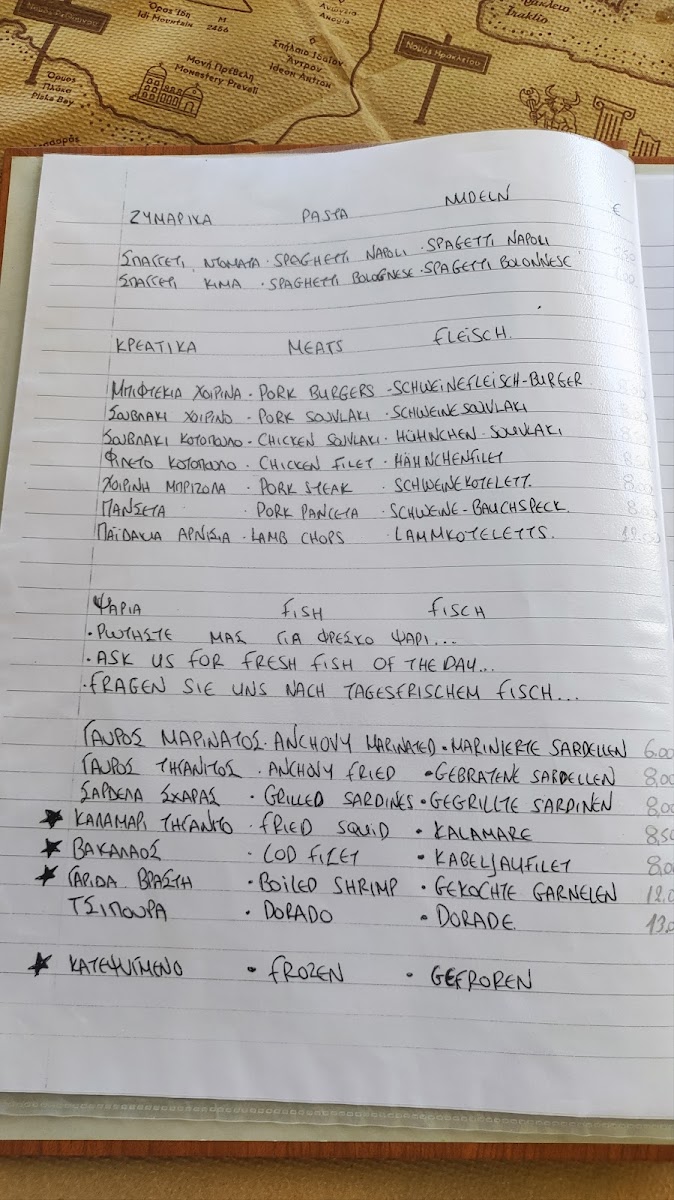 Νομός Ρεθύμνου
Όρος Ίδη
Idi Mountain
M
2456
Ανώγεια
Anogia
Iraklio
Σπήλαιο Ιδαίον
Άντρον
Ideon Antron
Νομός Ηρακλείου
Μονή Πρέβελη
Monastery Preveli
Όρμος
Πλάκα
Plaka Bay
ΖΥΜΑΡΙΚΑ PASTA NUDELN €
ΣΠΑΓΓΕΤΙ ΝΤΟΜΑΤΑ · SPAGHETTI NAPOLI · SPAGETTI NAPOLI
ΣΠΑΓΓΕΤΙ ΚΙΜΑ · SPAGHETTI BOLOGNESE · SPAGETTI BOLONNESE
ΚΡΕΑΤΙΚΑ MEATS FLEISCH.
ΜΠΙΦΤΕΚΙΑ ΧΟΙΡΙΝΑ · PORK BURGERS - SCHWEINEFLEISCH-BURGER
ΣΟΥΒΛΑΚΙ ΧΟΙΡΙΝΟ · PORK SOUVLAKI · SCHWEINE SOUVLAKI
ΣΟΥΒΛΑΚΙ ΚΟΤΟΠΟΥΛΟ · CHICKEN SOUVLAKI · HÜHNCHEN - SOUVLAKI
ΦΙΛΕΤΟ ΚΟΤΟΠΟΥΛΟ · CHICKEN FILET · HÄHNCHENFILET
ΧΟΙΡΙΝΗ ΜΠΡΙΖΟΛΑ · PORK STEAK · SCHWEINEKOTELETT.
ΠΑΝΣΕΤΑ · PORK PANCETA · SCHWEINE-BAUCHSPECK.
ΠΑΪΔΑΚΙΑ ΑΡΝΙΣΙΑ · LAMB CHOPS · LAMMKOTELETTS.
ΨΑΡΙΑ FISH FISCH
· ΡΩΤΗΣΤΕ ΜΑΣ ΓΙΑ ΦΡΕΣΚΟ ΨΑΡΙ...
· ASK US FOR FRESH FISH OF THE DAY...
· FRAGEN SIE UNS NACH TAGESFRISCHEM FISCH...
ΓΑΥΡΟΣ ΜΑΡΙΝΑΤΟΣ · ANCHOVY MARINATED · MARINIERTE SARDELLEN 6.00
ΓΑΥΡΟΣ ΤΗΓΑΝΙΤΟΣ · ANCHOVY FRIED · GEBRATENE SARDELLEN 8,00
ΣΑΡΔΕΛΑ ΣΧΑΡΑΣ · GRILLED SARDINES · GEGRILLTE SARDINEN 8,00
★ ΚΑΛΑΜΑΡΙ ΤΗΓΑΝΤΟ · FRIED SQUID · KALAMARE 8,50
★ ΒΑΚΑΛΑΟΣ · COD FILET · KABELJAUFILET 8,00
★ ΓΑΡΙΔΑ ΒΡΑΣΤΗ · BOILED SHRIMP · GEKOCHTE GARNELEN 12.0
ΤΣΙΠΟΥΡΑ · DORADO · DORADE 13,0
★ ΚΑΤΕΨΥΓΜΕΝΟ · FROZEN · GEFROREN